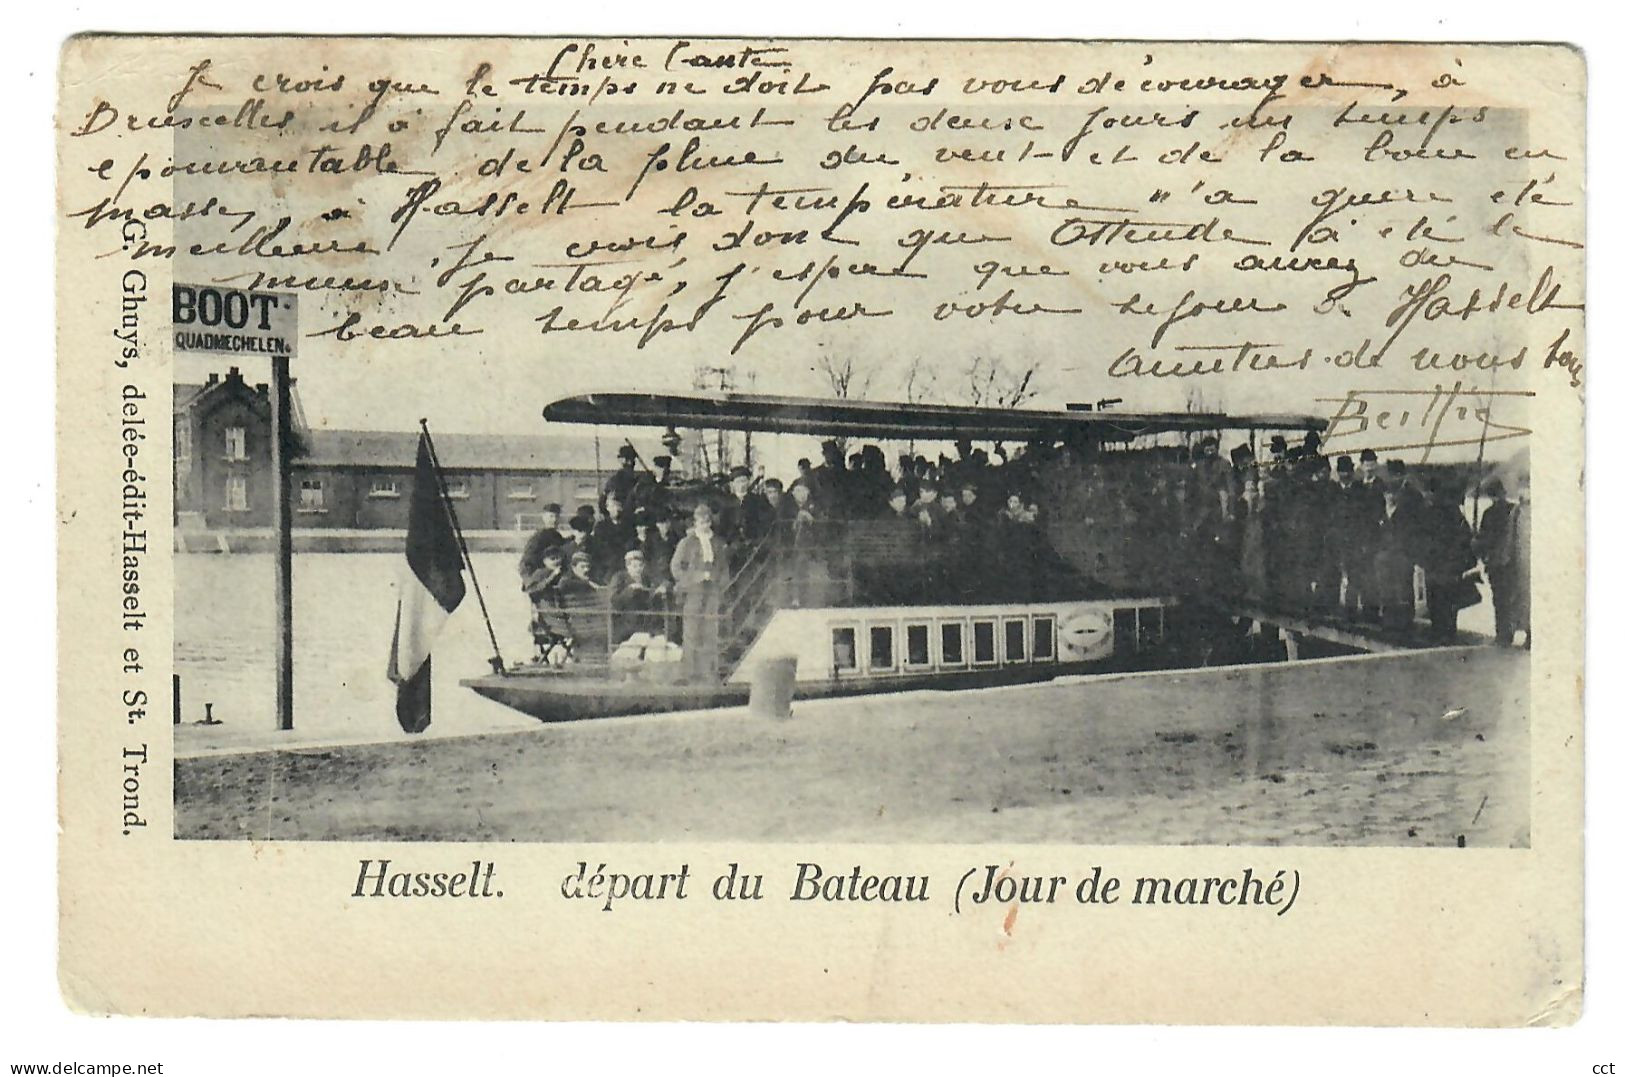 Chère Tante
Je crois que le temps ne doit pas vous décourager, à
Bruxelles il à fait pendant les deux jours un temps
epouvantable de la pluie du vent et de la boue en
masse, à Hasselt la température n'a guere eté
meilleure, je crois donc que Ostende à eté le
mieux partagé, j'espere que vous aurez du
beau temps pour votre sejour à Hasselt
Amitiés de nous tous
BOOT
QUADMECHELEN.
G. Ghuys, delée-édit-Hasselt et St. Trond.
Hasselt. départ du Bateau (Jour de marché)
delcampe.net
cct